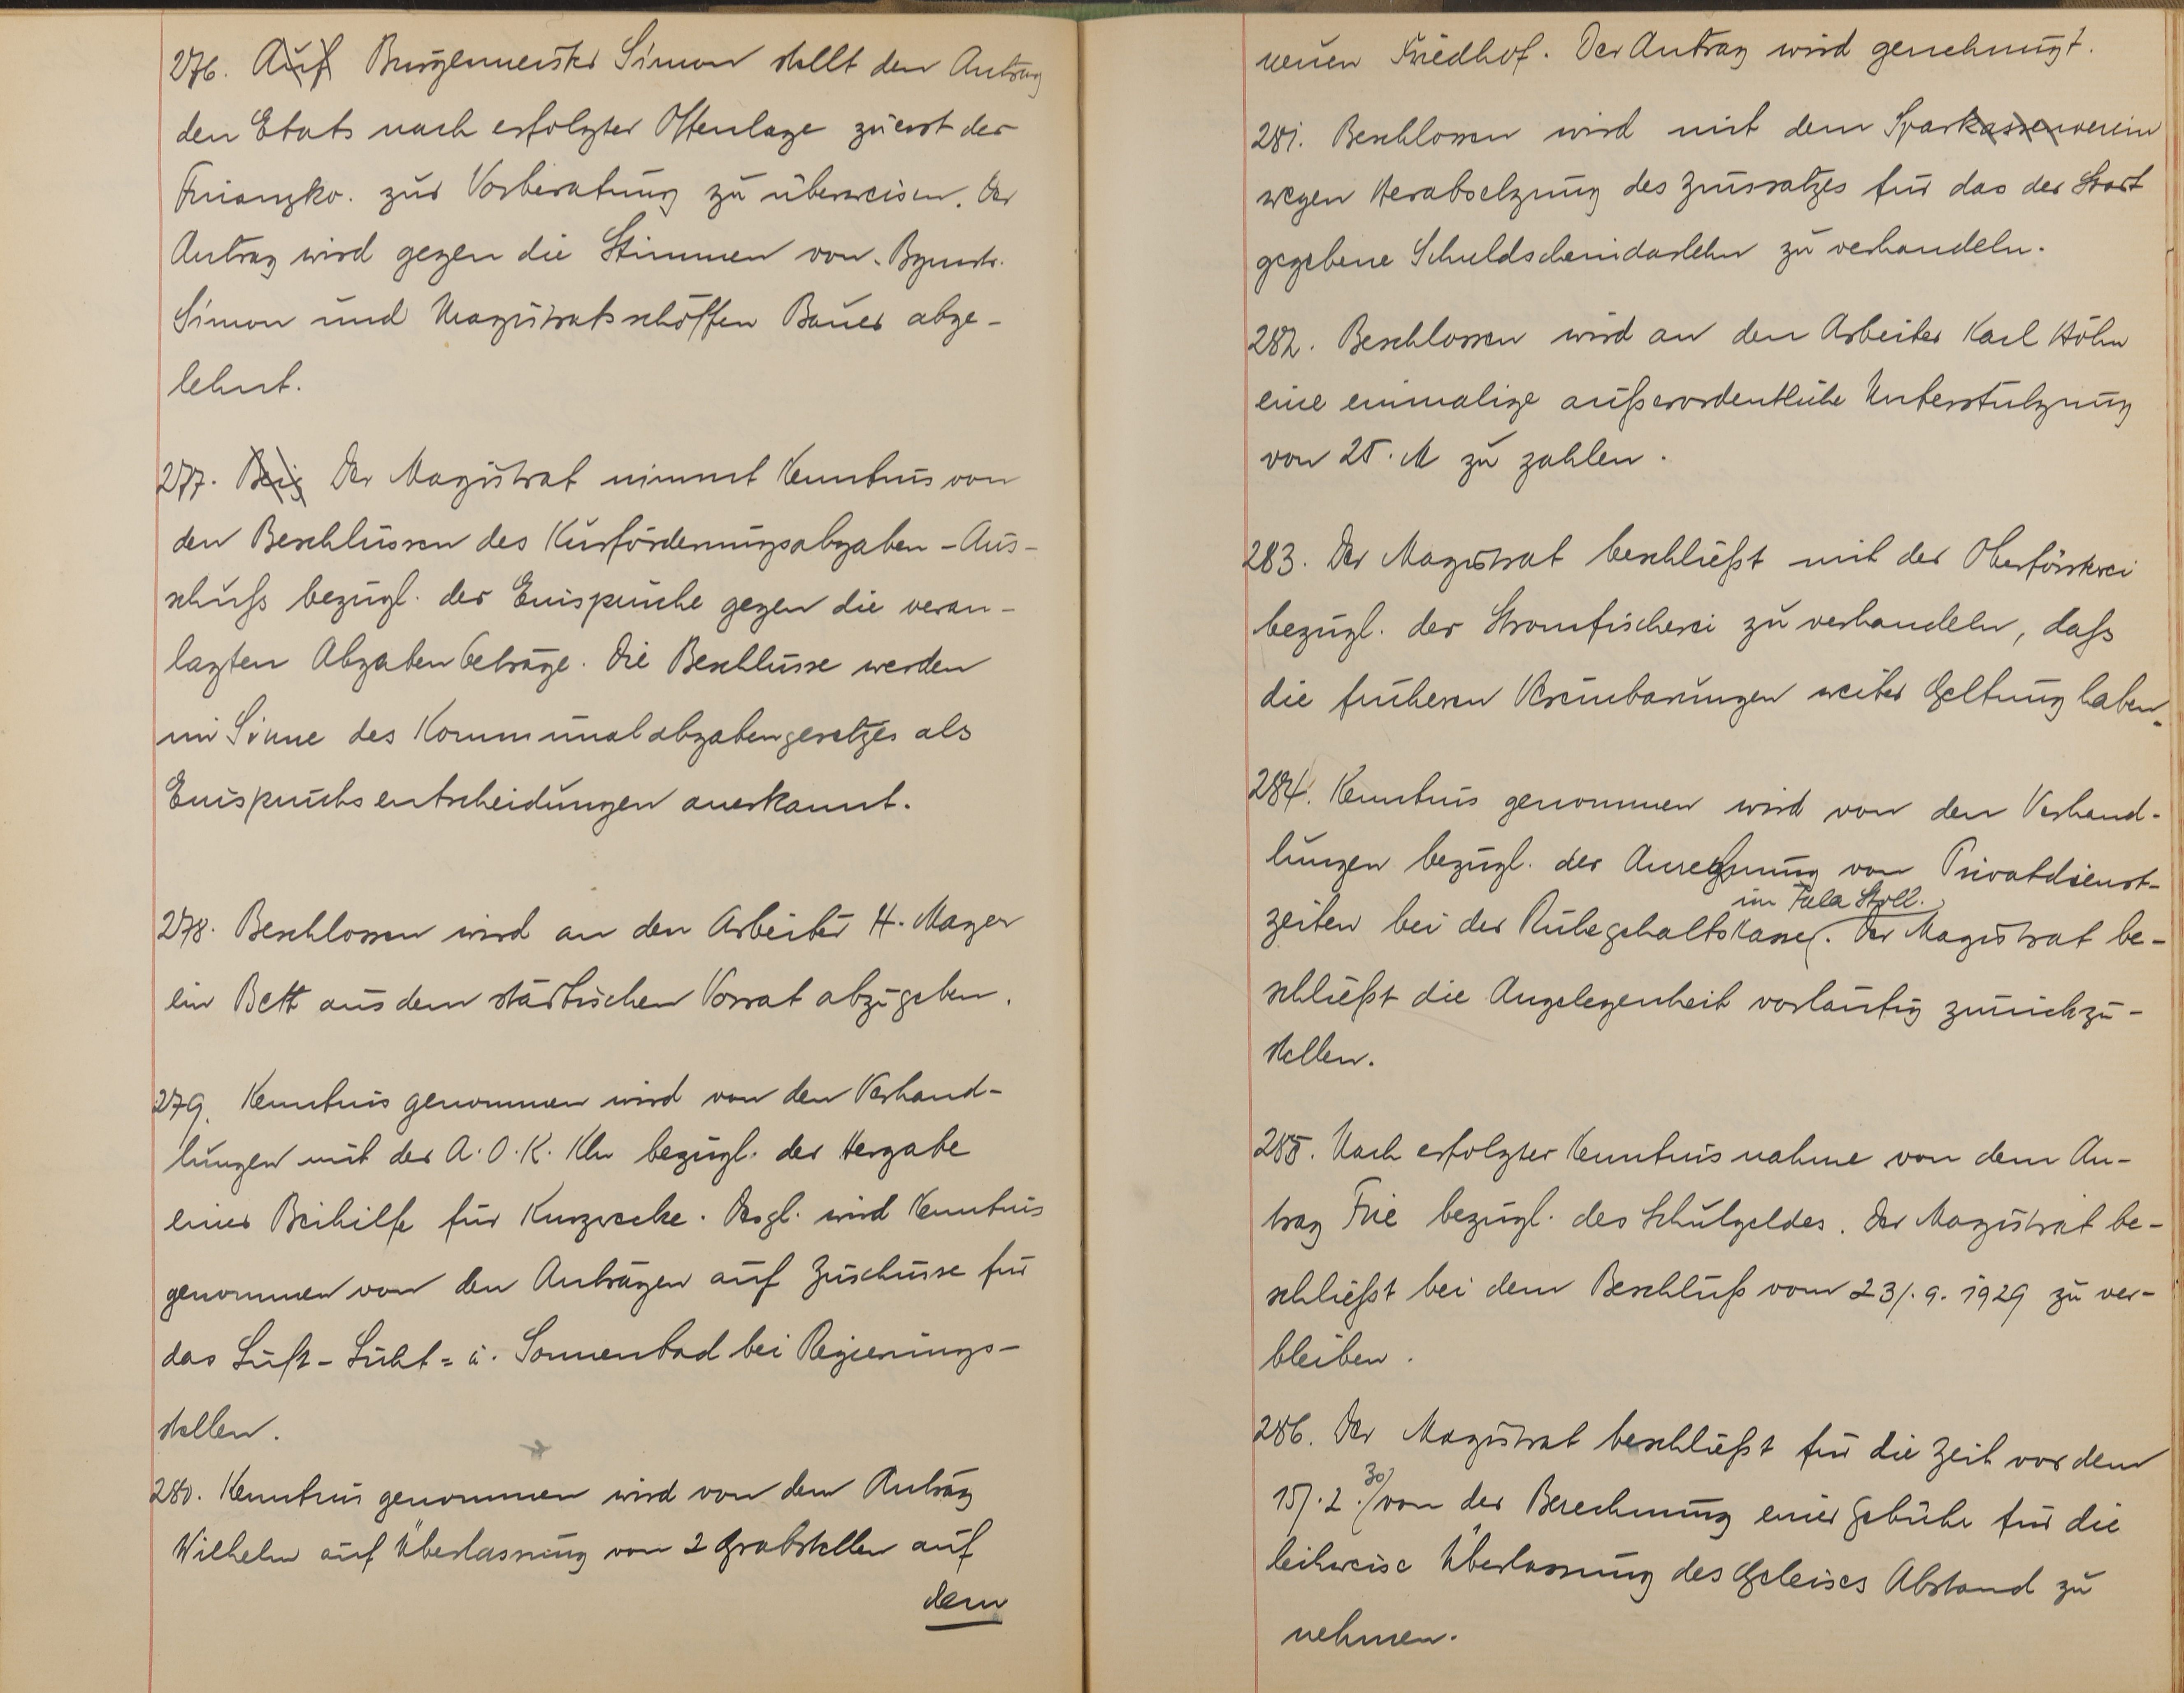 276. Auf Burgermeister Simon stellt den Antrag
den Etats nach erfolgter Offenlage zuerst der
Finanzko. zur Vorberatung zu überweisen. Der
Antrag wird gegen die Stimmen von Bgmstr.
Simon und Magistratsschöffen Bauer abge-
lehnt.
277. Der Magistrat nimmt Kenntnis von
den Beschlüssen des Kurförderungsabgaben-Aus-
schuß bezügl. der Einsprüche gegen die veran-
lagten Abgabenbeträge. Die Beschlüsse werden
im Sinne des Kommunalabgabengesetzes als
Einspruchsentscheidungen anerkannt.
278. Beschlossen wird an den Arbeiter H. Mayer
ein Bett aus dem städtischen Vorrat abzugeben.
279. Kenntnis genommen wird von den Verhand-
lungen mit der A.O.K. Khn bezügl. der Hergabe
einer Beihilfe für Kurzwecke. Desgl. wird Kenntnis
genommen von den Anträgen auf Zuschüsse für
das Luft-Licht= u. Sonnenbad bei Regierungs-
stellen.
280. Kenntnis genommen wird von dem Antrag
Wilhelm auf Überlassung von 2 Grabstellen auf
dem
neuen Friedhof. Der Antrag wird genehmigt.
281. Beschlossen wird mit dem Sparkassenverein
wegen Herabsetzung des Zinssatzes für das der Stadt
gegebene Schuldscheindarlehn zu verhandeln.
282. Beschlossen wird an den Arbeiter Karl Höhn
eine einmalige außerordentliche Unterstützung
von 25.M zu zahlen.
283. Der Magistrat beschließt mit der Oberförsterei
bezügl. der Stromfischerei zu verhandeln, daß
die früheren Vereinbarungen weiter Geltung haben.
284. Kenntnis genommen wird von den Verhand-
lungen bezügl. der Anrechnung von Privatdienst-
im Falle Stoll.
zeiten bei der Ruhegehaltskasse. Der Magistrat be-
schließt die Angelegenheit vorläufig zurückzu-
stellen.
285. Nach erfolgter Kenntnisnahme von dem An-
trag Frie bezügl. des Schulgeldes. Der Magistrat be-
schließt bei dem Beschluß vom 23/.9.1929 zu ver-
bleiben.
286. Der Magistrat beschließt für die Zeit vor dem
15/.2.30/von der Berechnung einer Gebühr für die
leihweise Überlassung des Geleises Abstand zu
nehmen.